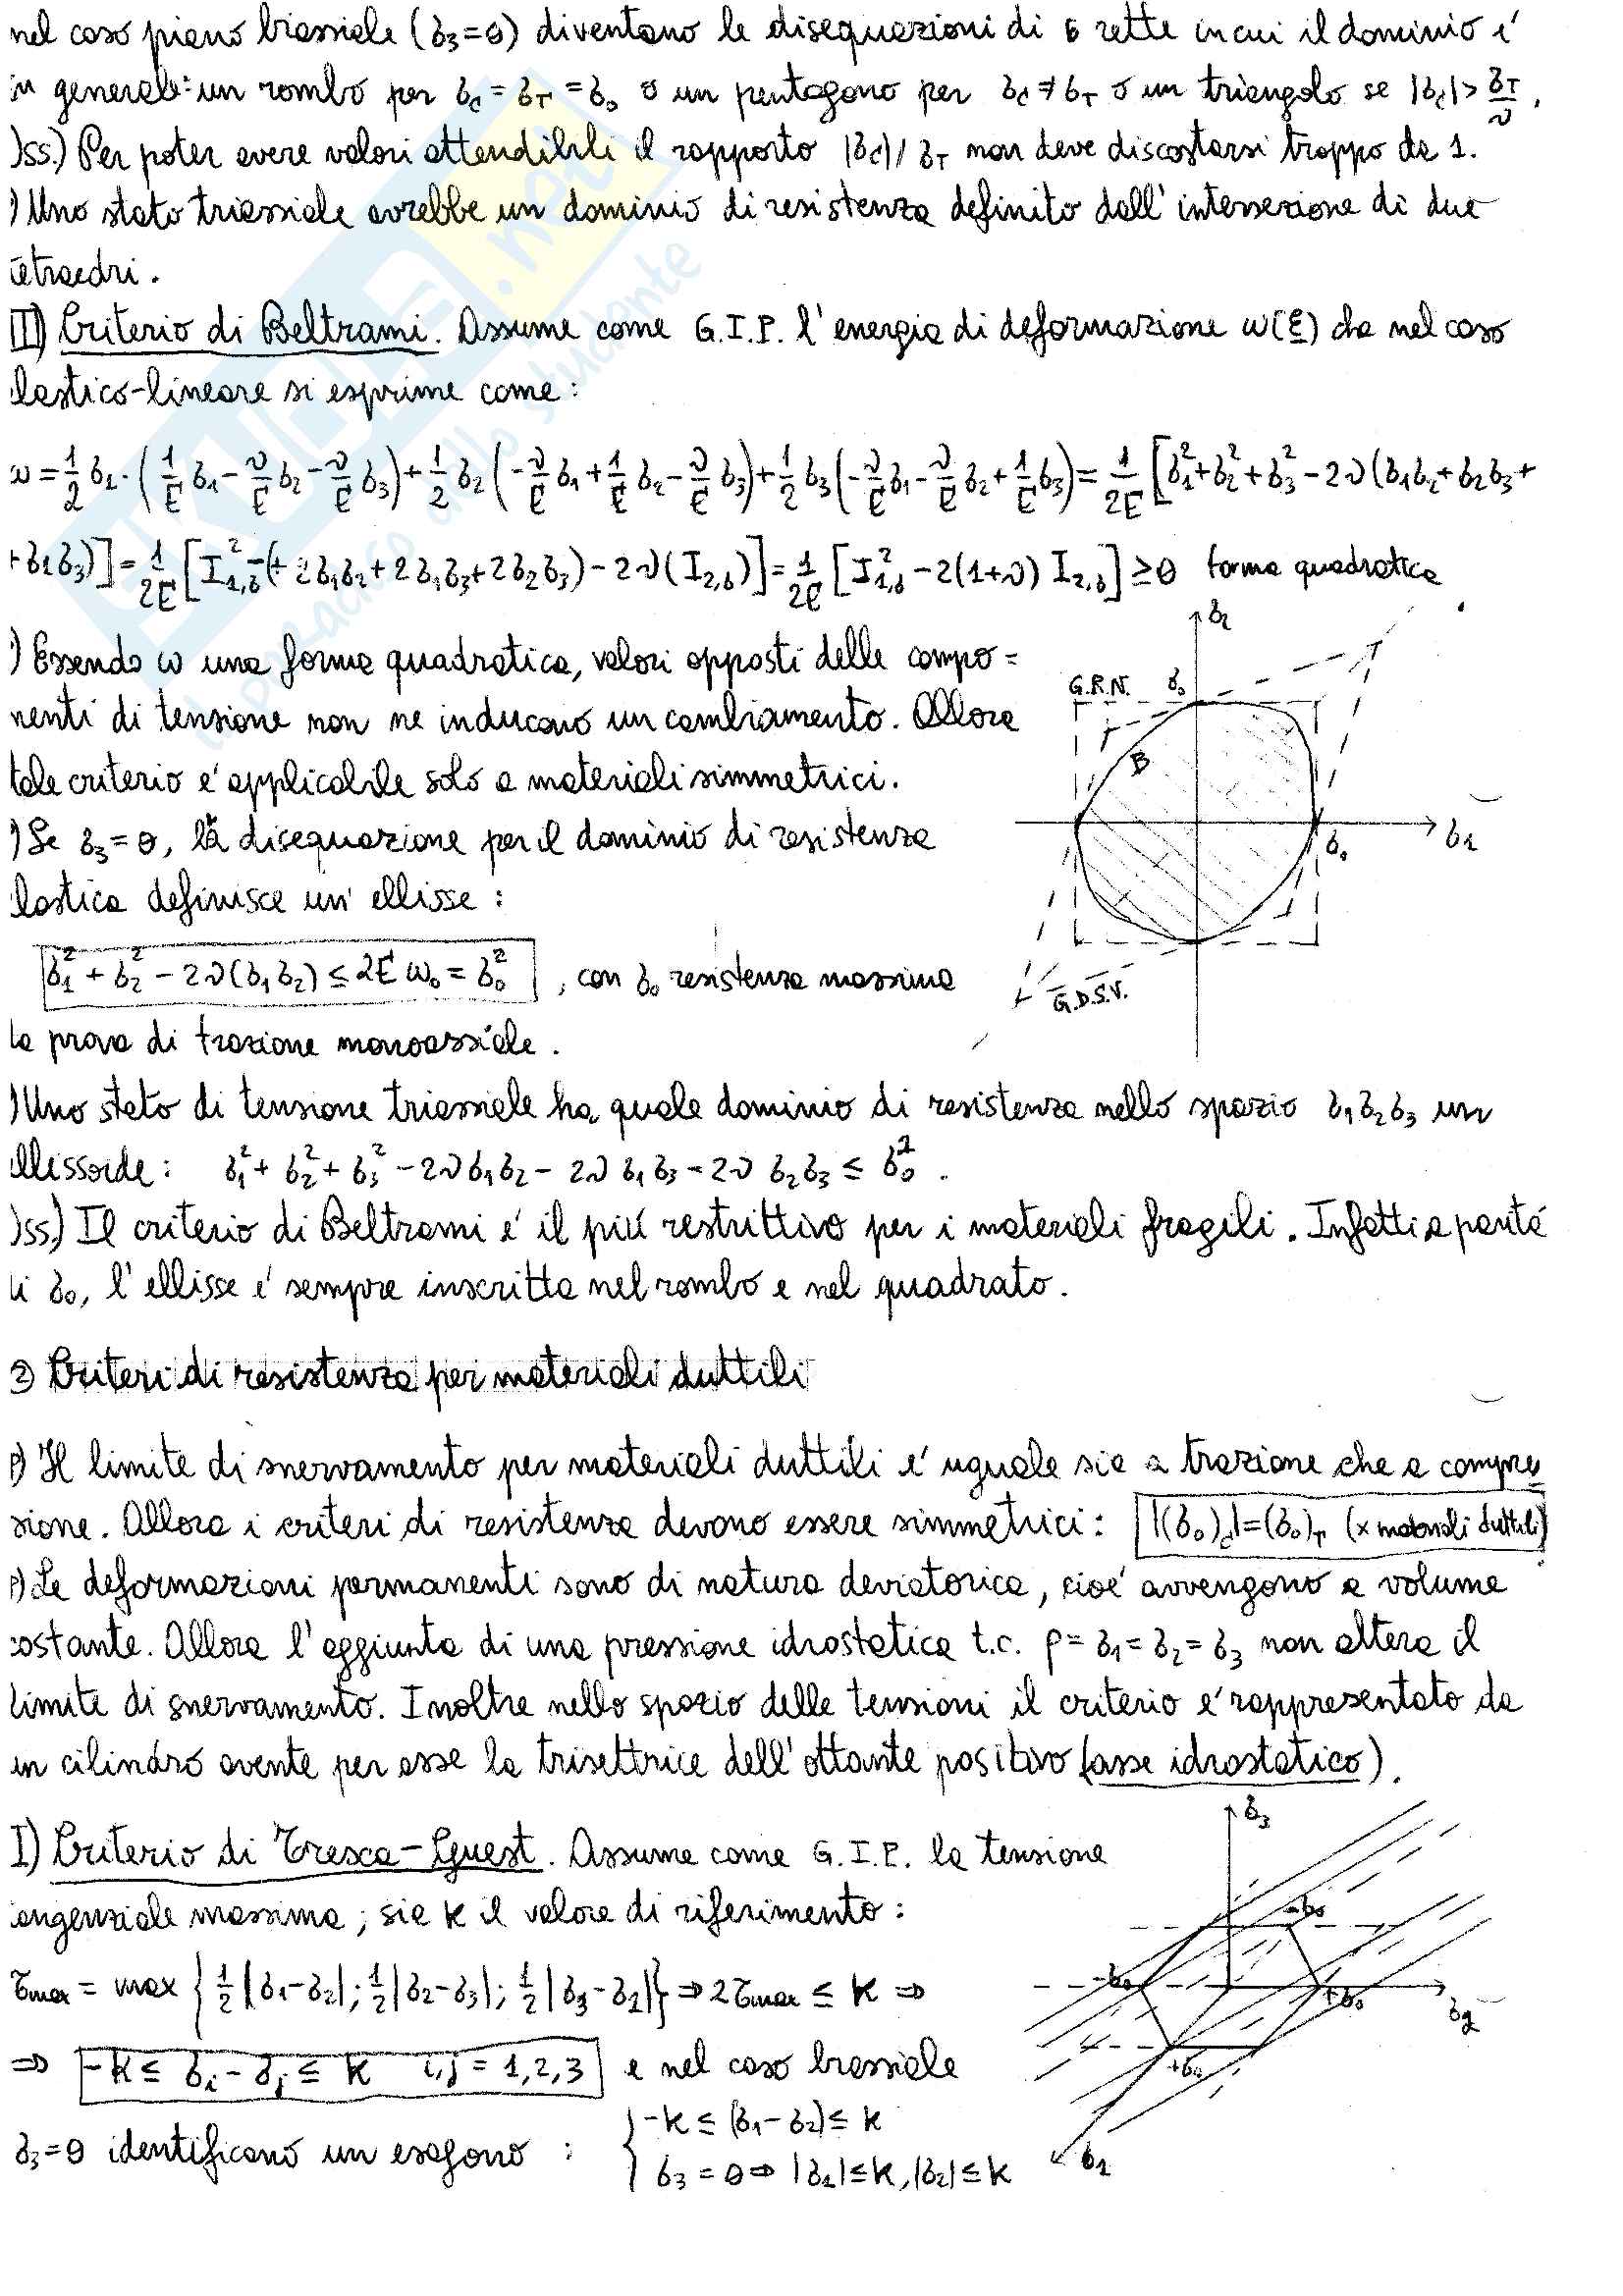 nel caso piano biassiale (σ₃=0) diventano le disequazioni di 6 rette in cui il dominio é
in generale: un rombo per σ_C = σ_T = σ₀ o un pentagono per σ_C ≠ σ_T o un triangolo se |σ_C| > σ_T/ν.
)ss.) Per poter avere valori attendibili il rapporto |σ_C|/σ_T non deve discostarsi troppo da 1.
) Uno stato triassiale avrebbe un dominio di resistenza definito dall'intersezione di due
etraedri.
II) Criterio di Beltrami. Assume come G.I.P. l'energia di deformazione ω(ε) che nel caso
lastico-lineare si esprime come:
ω = 1/2 σ₁·(1/E σ₁ - ν/E σ₂ - ν/E σ₃) + 1/2 σ₂(-ν/E σ₁ + 1/E σ₂ - ν/E σ₃) + 1/2 σ₃(-ν/E σ₁ - ν/E σ₂ + 1/E σ₃) = 1/2E [σ₁² + σ₂² + σ₃² - 2ν(σ₁σ₂ + σ₂σ₃ +
+σ₁σ₃)] = 1/2E [I²₁,σ - (+2σ₁σ₂ + 2σ₁σ₃ + 2σ₂σ₃) - 2ν(I₂,σ)] = 1/2E [I²₁,σ - 2(1+ν) I₂,σ] ≥ 0 forma quadratica
) Essendo ω una forma quadratica, valori opposti delle compo=
nenti di tensione non ne inducono un cambiamento. Allora
tale criterio é applicabile solo a materiali simmetrici.
) Se σ₃ = 0, la disequazione per il dominio di resistenza
lastica definisce un'ellisse:
σ₁² + σ₂² - 2ν(σ₁σ₂) ≤ 2E ω₀ = σ₀² , con σ₀ resistenza massima
la prova di trazione monoassiale.
σ₂
G.R.N. σ₀
B
σ₀ σ₁
G.D.S.V.
) Uno stato di tensione triassiale ha quale dominio di resistenza nello spazio σ₁σ₂σ₃ un
llissoide: σ₁² + σ₂² + σ₃² - 2νσ₁σ₂ - 2νσ₁σ₃ - 2νσ₂σ₃ ≤ σ₀² .
)ss.) Il criterio di Beltrami é il piú restrittivo per i materiali fragili. Infatti a paritá
di σ₀, l'ellisse é sempre inscritta nel rombo e nel quadrato.
2) Criteri di resistenza per materiali duttili
p) Il limite di snervamento per materiali duttili é uguale sia a trazione che a compre
sione. Allora i criteri di resistenza devono essere simmetrici: |(σ₀)_C| = (σ₀)_T (x materiali duttili)
p) Le deformazioni permanenti sono di natura deviatorica, cioé avvengono a volume
costante. Allora l'aggiunta di una pressione idrostatica t.c. p = σ₁ = σ₂ = σ₃ non altera il
limite di snervamento. Inoltre nello spazio delle tensioni il criterio é rappresentato da
un cilindro avente per asse la trisettrice dell'ottante positivo (asse idrostatico).
I) Criterio di Tresca-Guest. Assume come G.I.P. la tensione
angenziale massima; sia K il valore di riferimento:
τmax = max {1/2|σ₁-σ₂|; 1/2|σ₂-σ₃|; 1/2|σ₃-σ₁|} ⇒ 2τmax ≤ K ⇒
⇒ -K ≤ σᵢ - σⱼ ≤ K i,j = 1,2,3 e nel caso biassiale
σ₃=0 identificano un esagono : { -K ≤ (σ₁-σ₂) ≤ K
σ₃ = 0 ⇒ |σ₁| ≤ K, |σ₂| ≤ K
σ₃
-σ₀
-σ₀ +σ₀
σ₂
+σ₀
σ₁